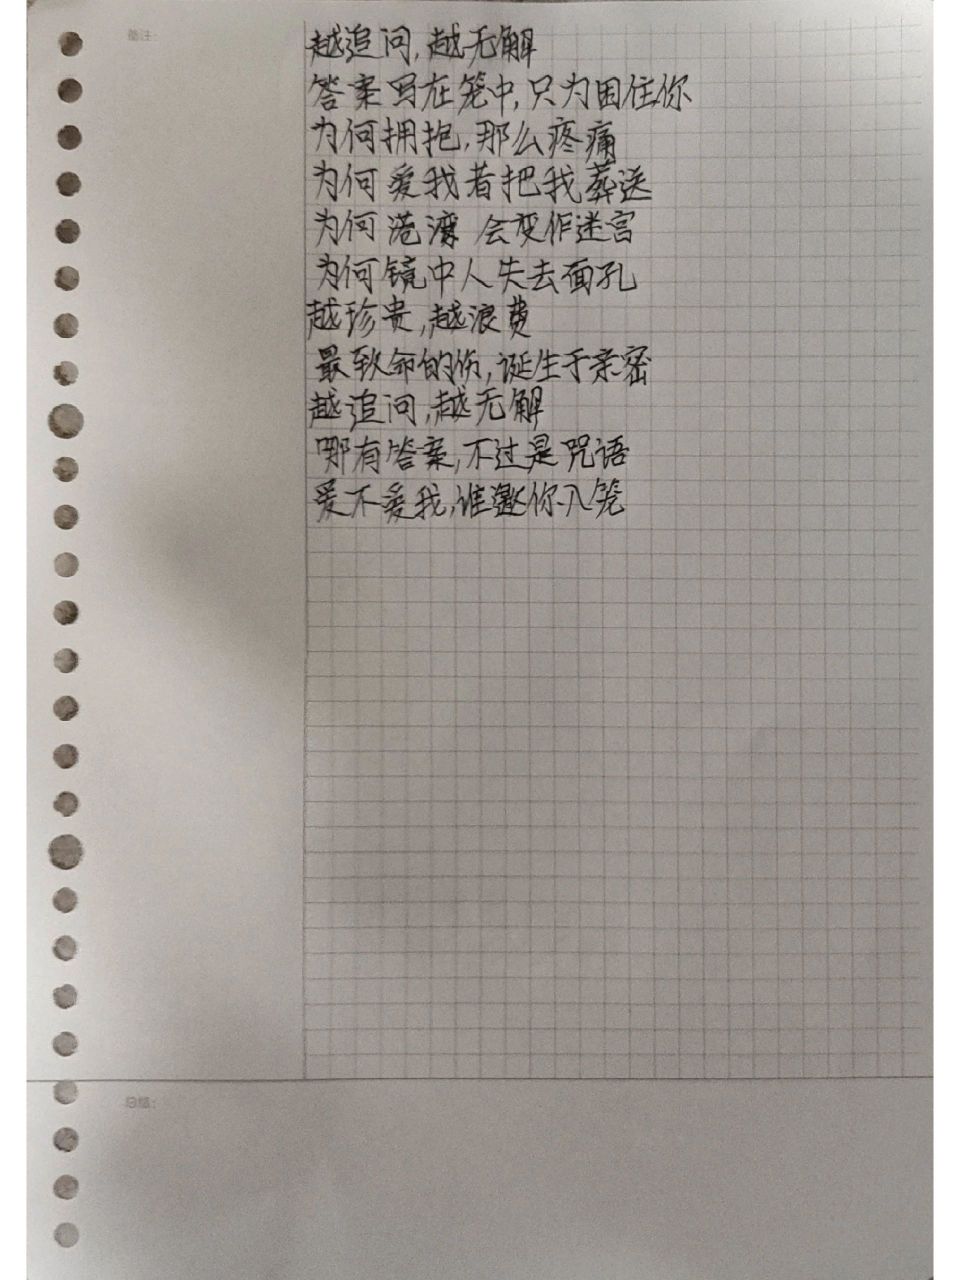 备注:
越追问,越无解
答案写在笼中,只为困住你
为何拥抱,那么疼痛
为何爱我者把我葬送
为何港湾 会变作迷宫
为何镜中人失去面孔
越珍贵,越浪费
最致命的伤,诞生于亲密
越追问,越无解
哪有答案,不过是咒语
爱不爱我,谁邀你入笼
总结: